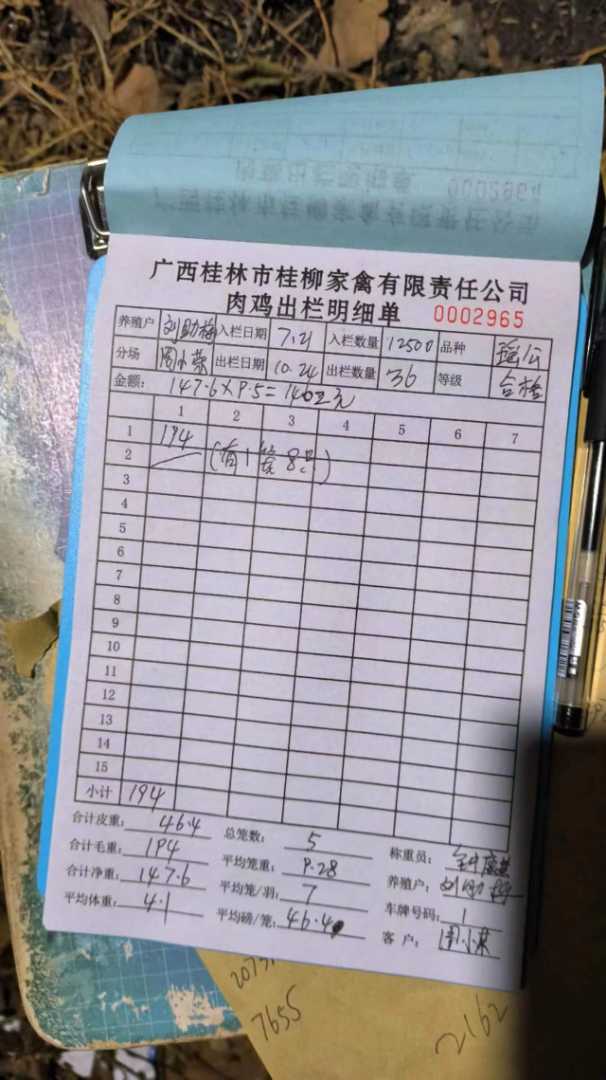 肉鸡出栏明细单 0002964
广西桂林市桂柳家禽有限责任公司
广西桂林市桂柳家禽有限责任公司
肉鸡出栏明细单 0002965
养殖户 刘助梅 入栏日期 7.21 入栏数量 12500 品种
分场 周小荣 出栏日期 10.24 出栏数量 36 等级 合格
金额: 147.6×9.5=1402元
1 2 3 4 5 6 7
1 194
2 (有1笼8只)
3
4
5
6
7
8
9
10
11
12
13
14
15
小计 194
合计皮重: 46.4 总笼数: 5 称重员:
合计毛重: 194 平均笼重: 9.28 养殖户: 刘助梅
合计净重: 147.6 平均笼/羽: 7 车牌号码: 1
平均体重: 4.1 平均磅/笼: 46.4 客 户: 周小荣
7655
2162